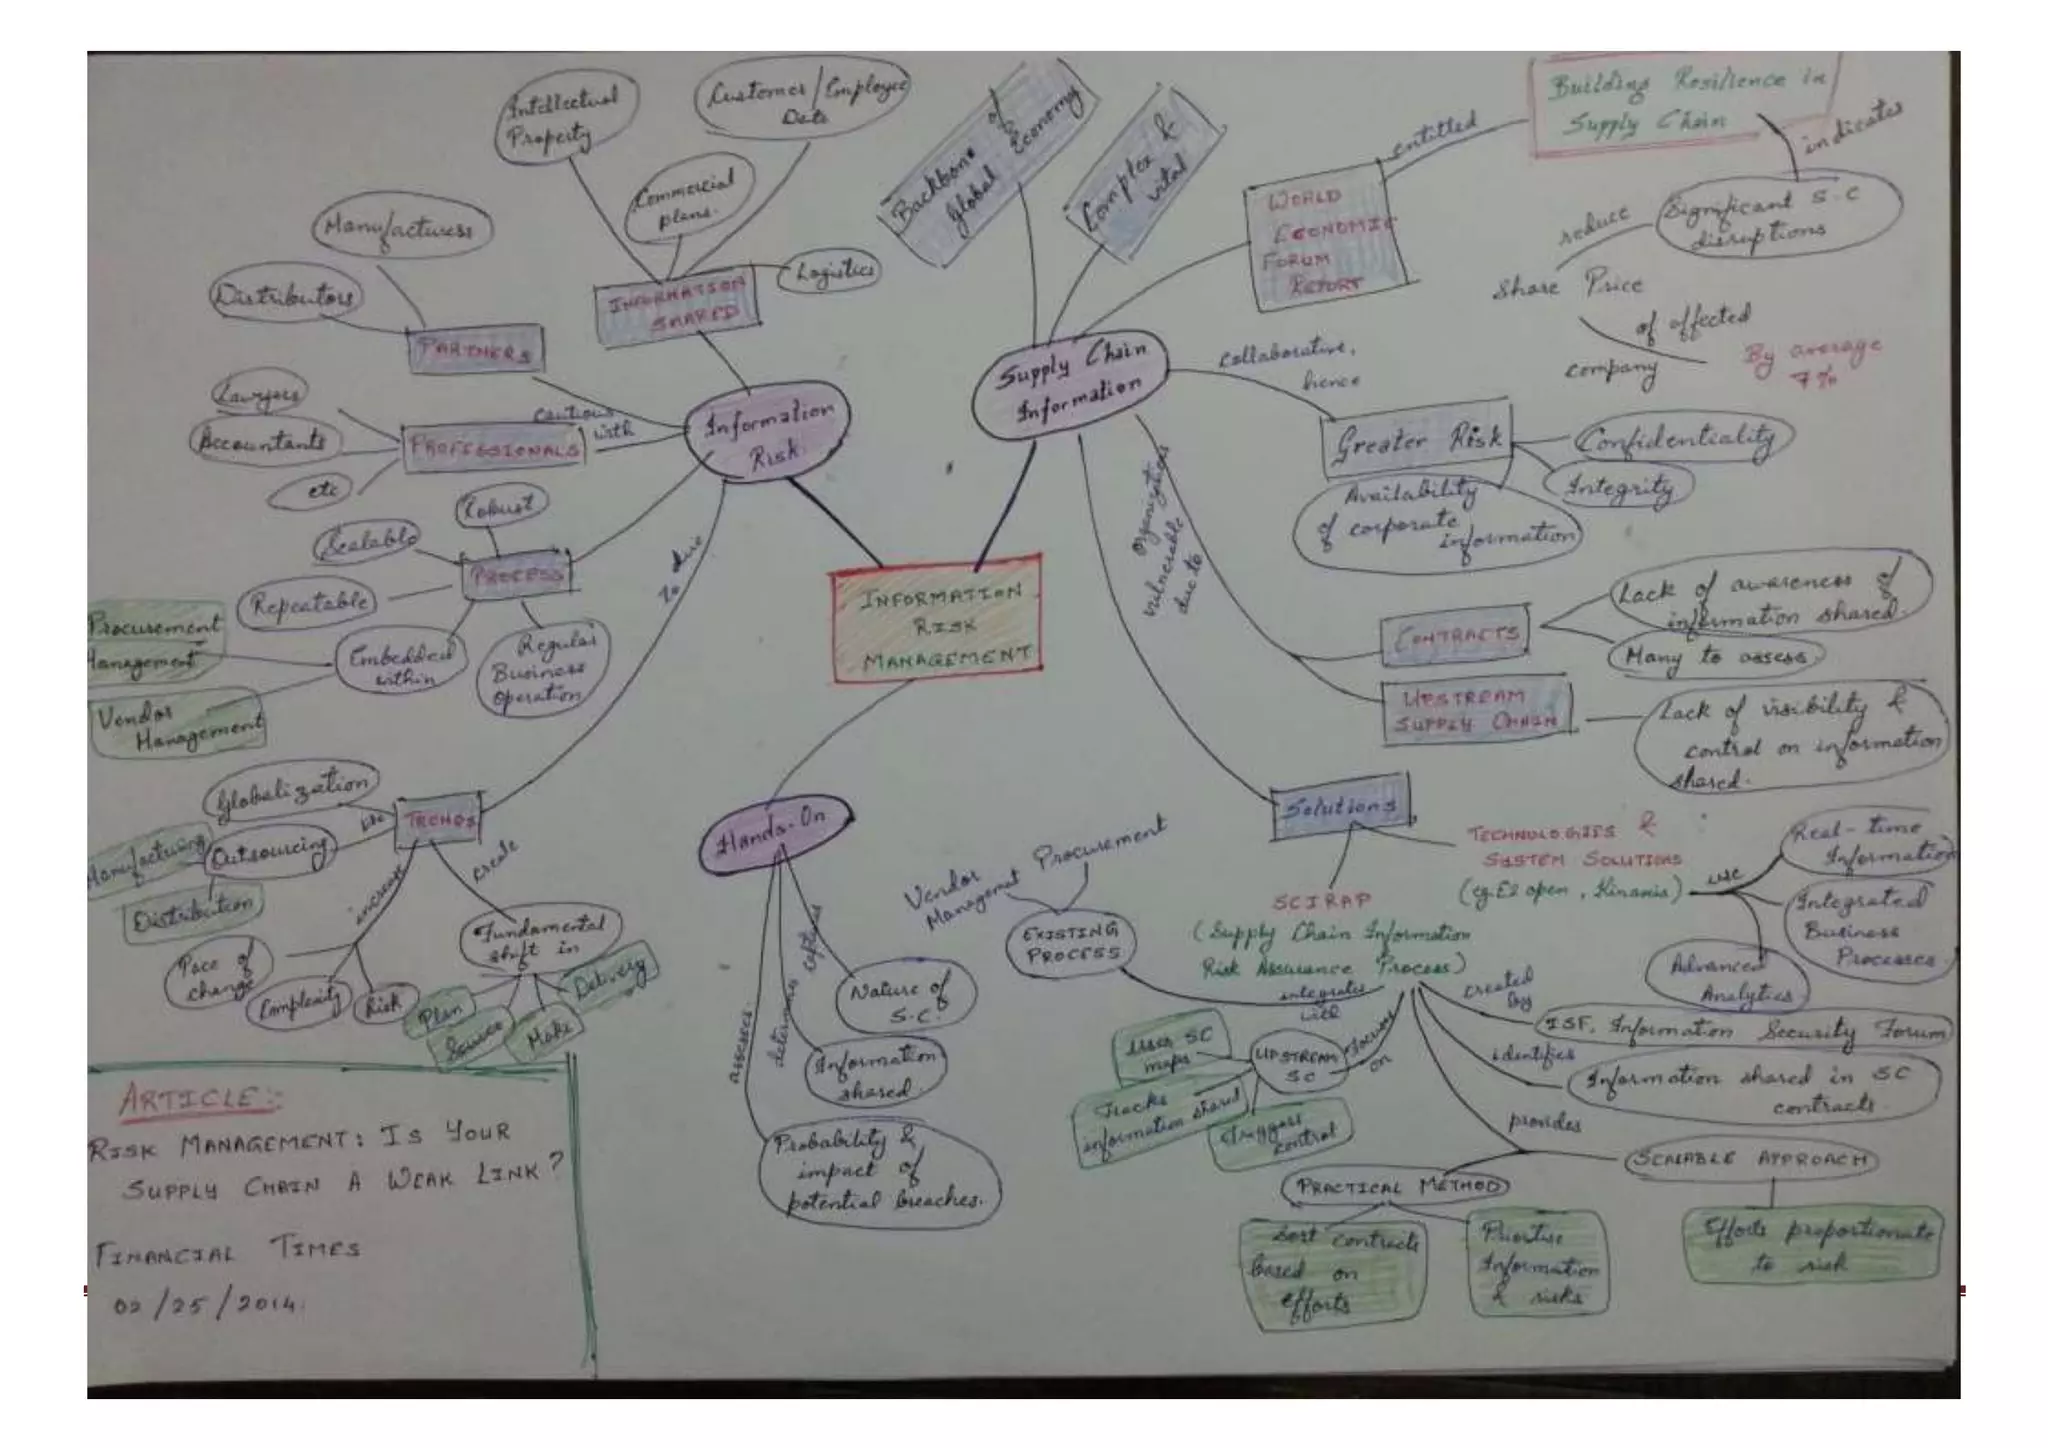 Intellectual
Property
Customer/Employee
Data
Commercial
plans.
Logistics
INFORMATION
SHARED
Manufacturers
Distributors
PARTNERS
Lawyers
Accountants
etc
PROFESSIONALS
cautious
with
Information
Risk.
Robust
Scalable
Repeatable
PROCESS
Embedded
within
Regular
Business
operation
Procurement
Management
Vendor
Management
to due
Globalization
Outsourcing
Manufacturing
Distribution
TRENDS
increase
create
Pace of
change
Complexity
Risk
Fundamental
shift in
Plan
Source
Make
Delivery
INFORMATION
RISK
MANAGEMENT
Hands-On
assesses
determines
captures
Nature of
S.C.
Information
shared.
Probability &
impact of
potential breaches.
Backbone of
Global Economy
Complex &
vital
WORLD
ECONOMIC
FORUM
REPORT
entitled
Building Resilience in
Supply Chain
indicates
Significant S.C
disruptions
reduce
Share Price
of affected
company
By average
7%
Supply Chain
Information
collaborative,
hence
Greater Risk
Confidentiality
Integrity
Availability
of corporate
information
organizations
vulnerable
due to
CONTRACTS
Lack of awareness of
information shared.
Many to assess.
UPSTREAM
SUPPLY CHAIN
Lack of visibility &
control on information
shared.
Solutions
TECHNOLOGIES &
SYSTEM SOLUTIONS
(eg. E2 open, Kinaxis)
use
Real-time
Information
Integrated
Business
Processes.
Advanced
Analytics.
SCIRAP
(Supply Chain Information
Risk Assurance Process)
integrates
with
EXISTING
PROCESS
Vendor
Management
Procurement
focuses
on
UPSTREAM
SC
SC
maps
Tracks
information shared
Triggers
control
created
by
ISF, Information Security Forum
identifies
Information shared in SC
contracts.
provides
SCALABLE APPROACH
Efforts proportionate
to risk
PRACTICAL METHOD
Sort contracts
based on
efforts
Prioritise
Information
& risks
ARTICLE:-
RISK MANAGEMENT: IS YOUR
SUPPLY CHAIN A WEAK LINK?
FINANCIAL TIMES
02/25/2014.